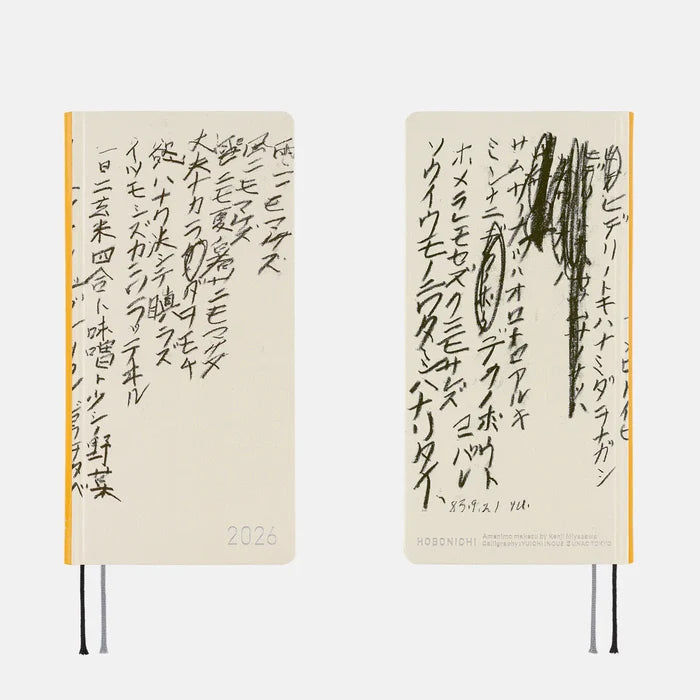 雨ニモマケズ
風ニモマケズ
雪ニモ夏ノ暑サニモマケズ
丈夫ナカラダヲモチ
慾ハナク決シテ瞋ラズ
イツモシズカニワラッテヰル
一日ニ玄米四合ト味噌ト少シノ野菜
2026
ヒデリノトキハナミダヲナガシ
サムサノナツハオロオロアルキ
ミンナニデクノボウト
ヨバレ
ホメラレモセズクニモサレズ
ソウイウモノニワタシハナリタイ
83.9.21 YU.
HOBONICHI
Amenimo makezu by Kenji Miyazawa
Calligraphy:YUICHI INOUE ©UNAC TOKYO